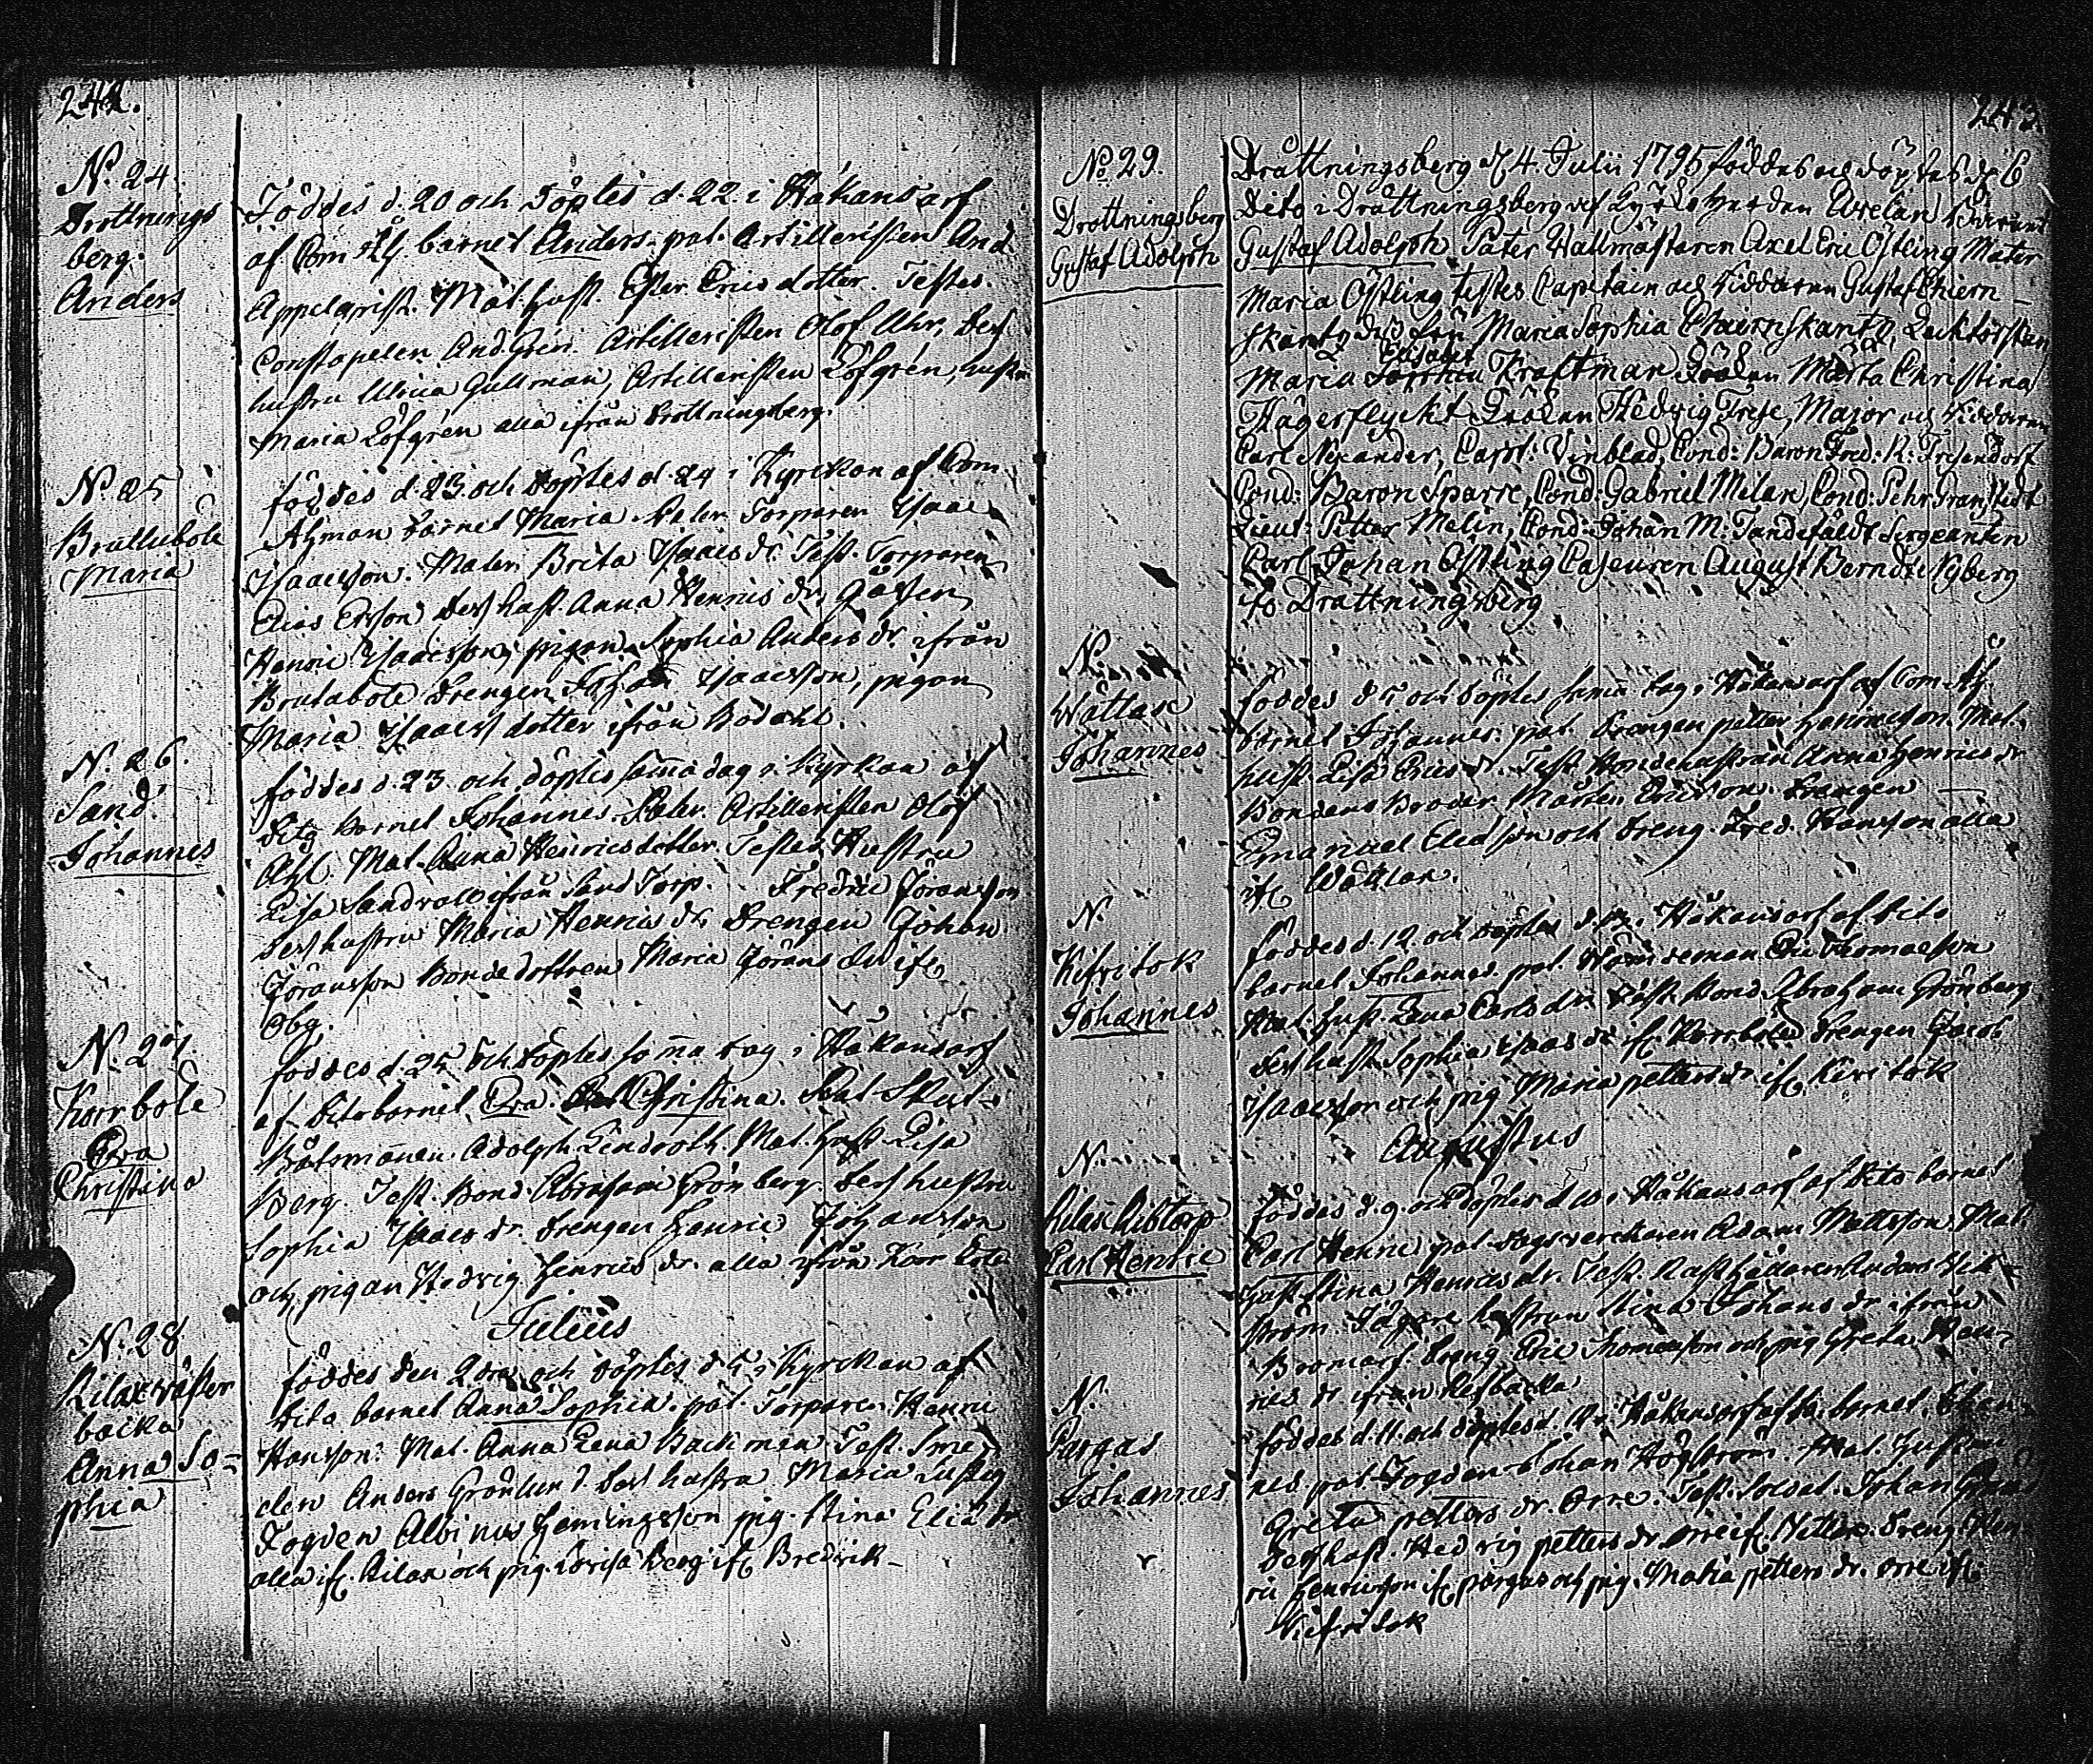 242.
N. 24
Drottnings
berg.
Anders
Föddes d. 20 och döptes d. 22. i Håkansarf
af Com barnet Anders. pat. Artilleristen And.
Mat. hust. Ester Erics dotter. Testes.
Constapelen And. Grön. Artilleristen Olof Uhr, dess
hustru Ulrica Gullman, Artilleristen Löfgrén, hustr
Maria Löfgrén alla ifrån Drottningsberg.
N. 25
Brullubole
Maria
föddes d. 23. och döptes d. 24 i Kyrckan af Com.
Ahman barnet Maria Pater Torparen Isaac
Isaacsson. Mater Brita Isaacs dr. Test. Torparen
Elias Ersson dess hust. Anna Henrics dr,
Henric Isaacsson, pigan Sophia Anders dr. ifrån
Brutabole drengen Johan Isaacsson, pigan
Maria Isaacs dotter ifrån
N. 26.
Sand.
Johannes
föddes d. 23. och döptes samma dag i Kyrkan af
dito barnet Johannes. Pater. Artilleristen Olof
Ahl. Mat. Anna Heinricsdotter. Testes Hustru
Lisa Sandvall ifrån Sand Torp. Fredric Joransson
dess hustru Maria Henrics dr. Drengen Johan
Joransson Bonde dottren Maria Jörans dr if.
Obg.
N. 27
Korrbole
Eva
Christina
föddes d. 25 och döptes samma dag i Håkansarf
af dito barnet Eva Christina. Pat Skut-
Båtsmannen Adolph Lindroth. Mat. hust Lisa
Berg. Test. Bond. Abraham Grönberg dess hustru
Sophia Isaacs dr. drengen Henric Johansson
och pigan Hedvig Henrics dr. alla ifrån Korrbole
Julius
N. 28
Rilaxwäster
backa
Anna So-
phia
föddes den 2dra och döptes d 5 i Kyrckan af
dito barnet Anna Sophia. pat. Torparen Henric
Hansson. Mat. Anna Lena Backman. Test. Sme-
den Anders Grönlund dess hustru Maria Lustig
Fogden Albinus Hemingsson pig. Stina Elias dr
alla if. Rilax och pig. Lovisa Berg if. Bredvik-
243.
No. 29.
Drottningsberg
Gustaf Adolph
Dråttningsberg d. 4. Julii 1795 föddes och döptes d. 6
Dito i Dråttningsberg af Herden
Gustaf Adolph Pater Wallmästaren Axel Eric Östling Mater
Maria Östling testes Capitain och Riddaren Gustaf Chiern-
skantz dess Maria Sophia Chiernskantz,
Maria Elisabet Kraftman Fröken Märta Christina
Hägerflycht Fröken Hedvig Frese, Major och Riddaren
Carl Nexander, Capit: Vinblad, Cond: Baron Fred: R: Frisendorf
Cond: Baron Sparre, Cond: Gabriel Milan, Cond: Pehr Granstedt
Lieut: Petter Melin, Cond: Johan M: Tandefäldt Sergeanten
Carl Johan Östling Caseuren August Berndt Nyberg
fr Drattningsberg
N.
Wättlax
Johannes
föddes d 5 och döptes samma dag i Håkansarf af Com. Åh
barnet Johannes. pat. Drengen petter Henricsson. Mat.
hust Lisa Erics dr. Test. Bondehustrun Anna Henrics dr
Bondens Broder Mårten Ericsson. Drengen
Emanuel Eliasson och dreng. Fred. Hansson alla
if. Wättlax.
N.
Kifritok
Johannes
föddes d. 12 och döptes d. 13. i Håkansarf af dito
barnet Johannes pat. Nämdeman Eric Thomasson
Mat. hust. Lena Carls dr. Test. Bond. Abraham Grönberg
dess hust. Sophia Isaacs dr if. Korrbole drengen Jacob
Isaacsson och pig Maria petters dr if. Kiritok
Augustus
N.
Rilax Ribtorp
Carl Henric
föddes d. 9. och Döptes d 10 i Håkansarf af dito barnet
Carl Henric pat. Adam Mattsson. Mat.
hust Stina Henrics dr. Test. Anders Vik-
ström. Jägare hustrun Stina Johans dr ifrån
Bromarf. dreng Eric Thomasson och pig Greta Hen-
rics dr ifrån
N.
Pargas
Johannes
föddes d. 11. och döptes d. 12 i Håkansarf af dito barnet. Johan-
nes pat. Fogden Johan Högström. Mat. hustru
Greta petters dr. Orre. Test. Soldat. Johan
dess hust. Hedvig petters dr. Orre if. dreng Hen-
ric Henricsson if. pargas och pig. Maria petters dr. orre if.
Kifritok